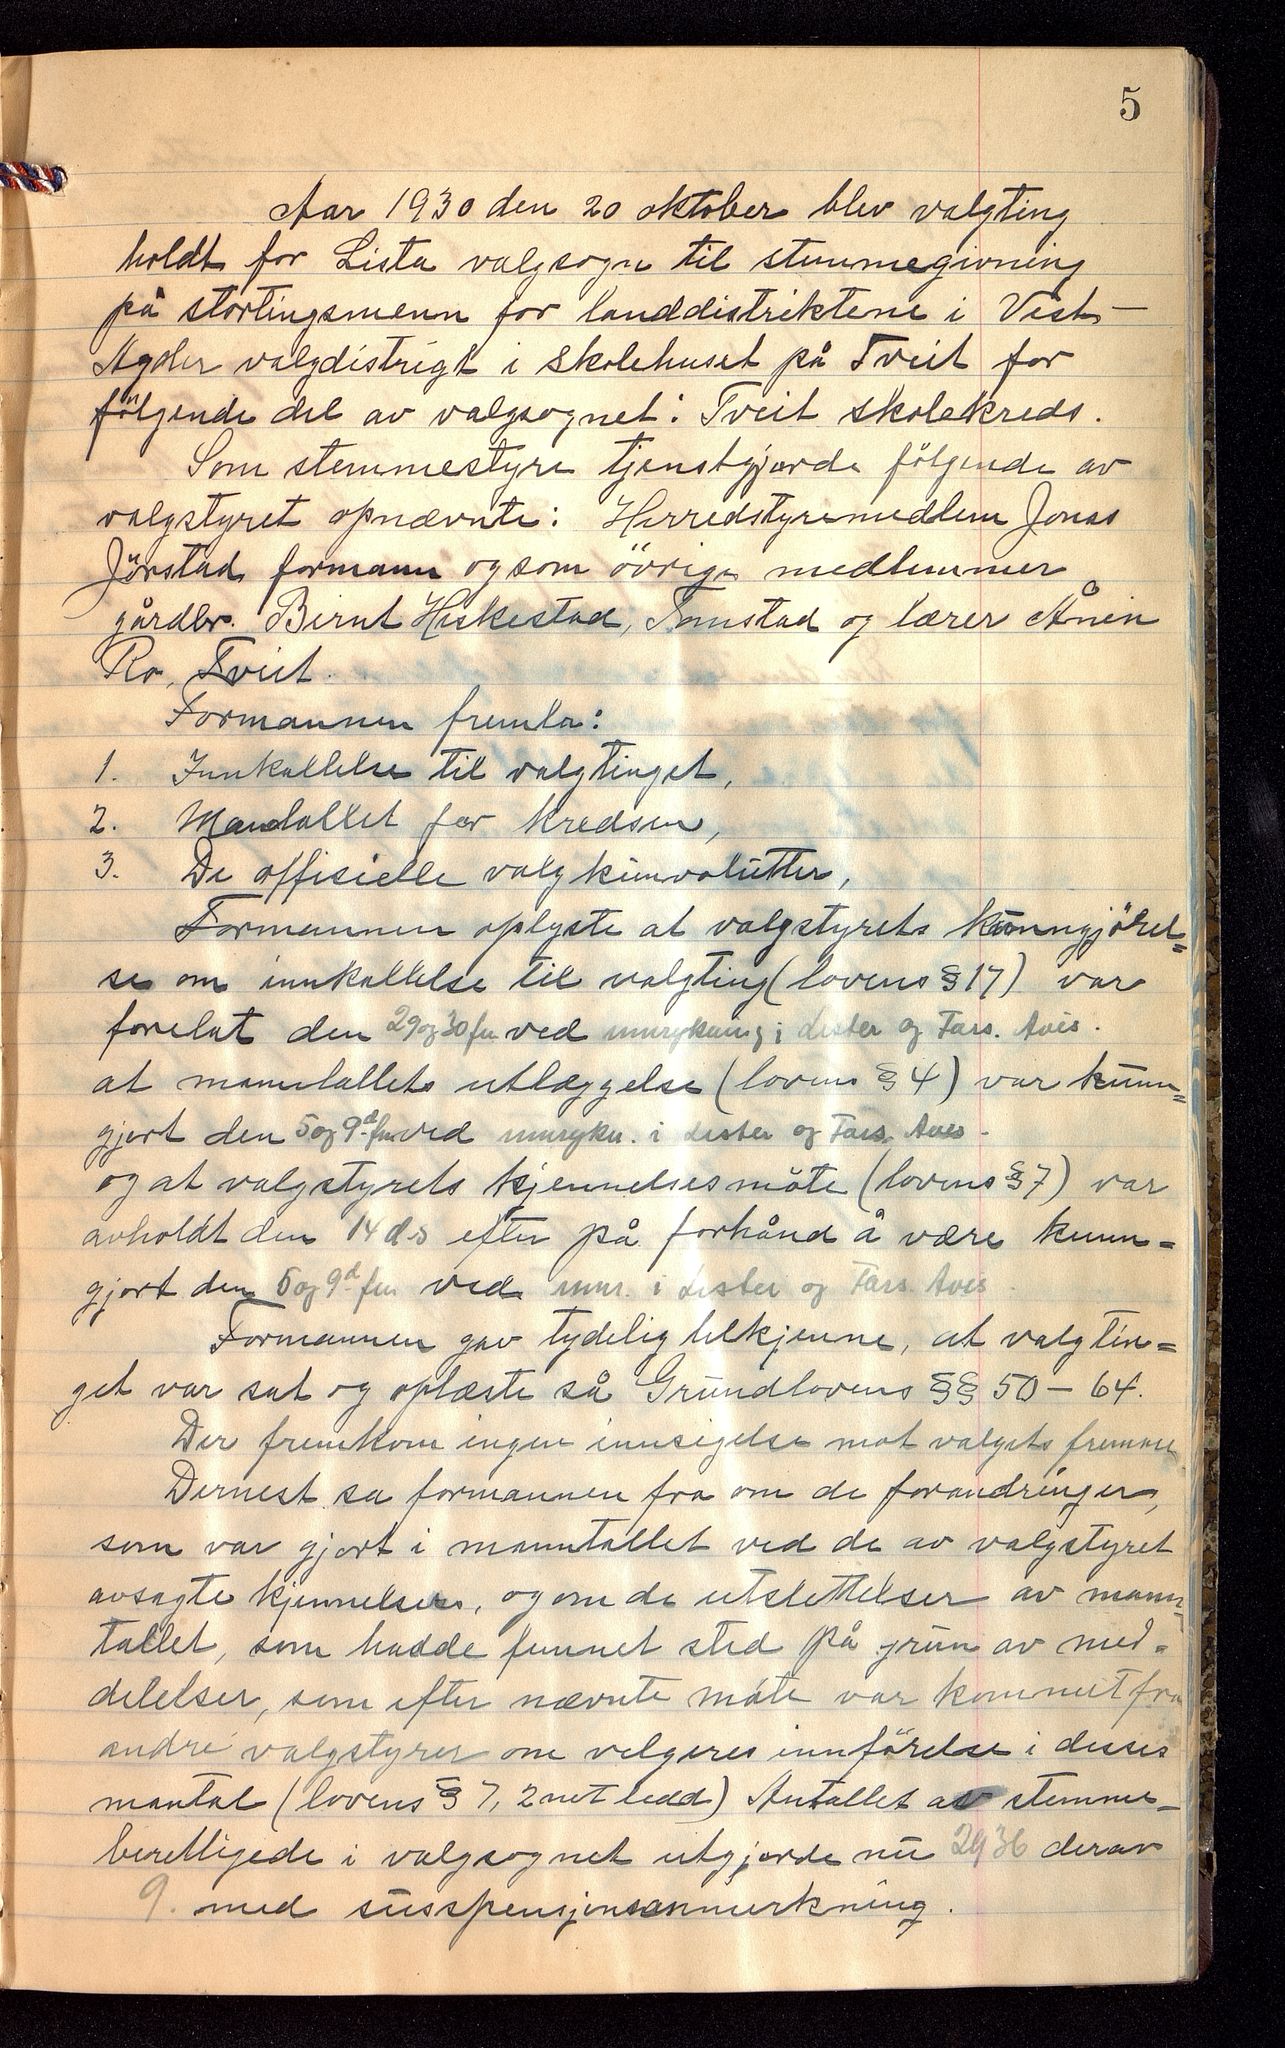 5
Aar 1930 den 20 oktober blev valgting
holdt for Lista valgsogn til stemmegivning
på stortingsmenn for landdistriktene i Vest-
Agder valgdistrigt i skolehuset på Tveit for
følgende del av valgsognet: Tveit skolekreds.
Som stemmestyre tjenstgjorde følgende av
valgstyret opnævnte: Herredstyremedlem Jonas
Jørstad formann og som øvrige medlemmer
gårdbr. Bernt Heskestad, Tomstad og lærer Ånen
Ro, Tveit.
Formannen fremla:
1. Innkallelse til valgtinget,
2. Mandtallet for kredsen,
3. De offisielle valgkunvolutter,
Formannen oplyste at valgstyrets kunngjørel=
se om innkallelse til valgting (lovens § 17) var
forelat den 29 og 30 fm ved i Lister og Fars. Avis.
at manntallets utlæggelse (lovens § 4) var kunn=
gjort den 5 og 9d fm ved i Lister og Fars. Avis.
og at valgstyrets kjennelsesmøte (lovens § 7) var
avholdt den 14 ds efter på forhånd å være kunn=
gjort den 5 og 9d fm ved i Lister og Fars. Avis
Formannen gav tydelig tilkjenne, at valgtin=
get var sat og oplæste så Grundlovens §§ 50 - 64.
Der fremkom ingen innsigelse mot valgets fremme
Dernest sa formannen fra om de forandringer,
som var gjort i manntallet ved de av valgstyret
avsagte kjennelser, og om de utslettelser av mann=
tallet, som hadde funnet sted på grun av med=
delelser, som efter nævnte møte var kommet fra
andre valgstyrer om velgeres innførelse i disses
mantal (lovens § 7, 2net ledd) Antallet av stemme=
berettigede i valgsognet utgjorde nu 2936 derav
9. med susspensjonsanmerkning.